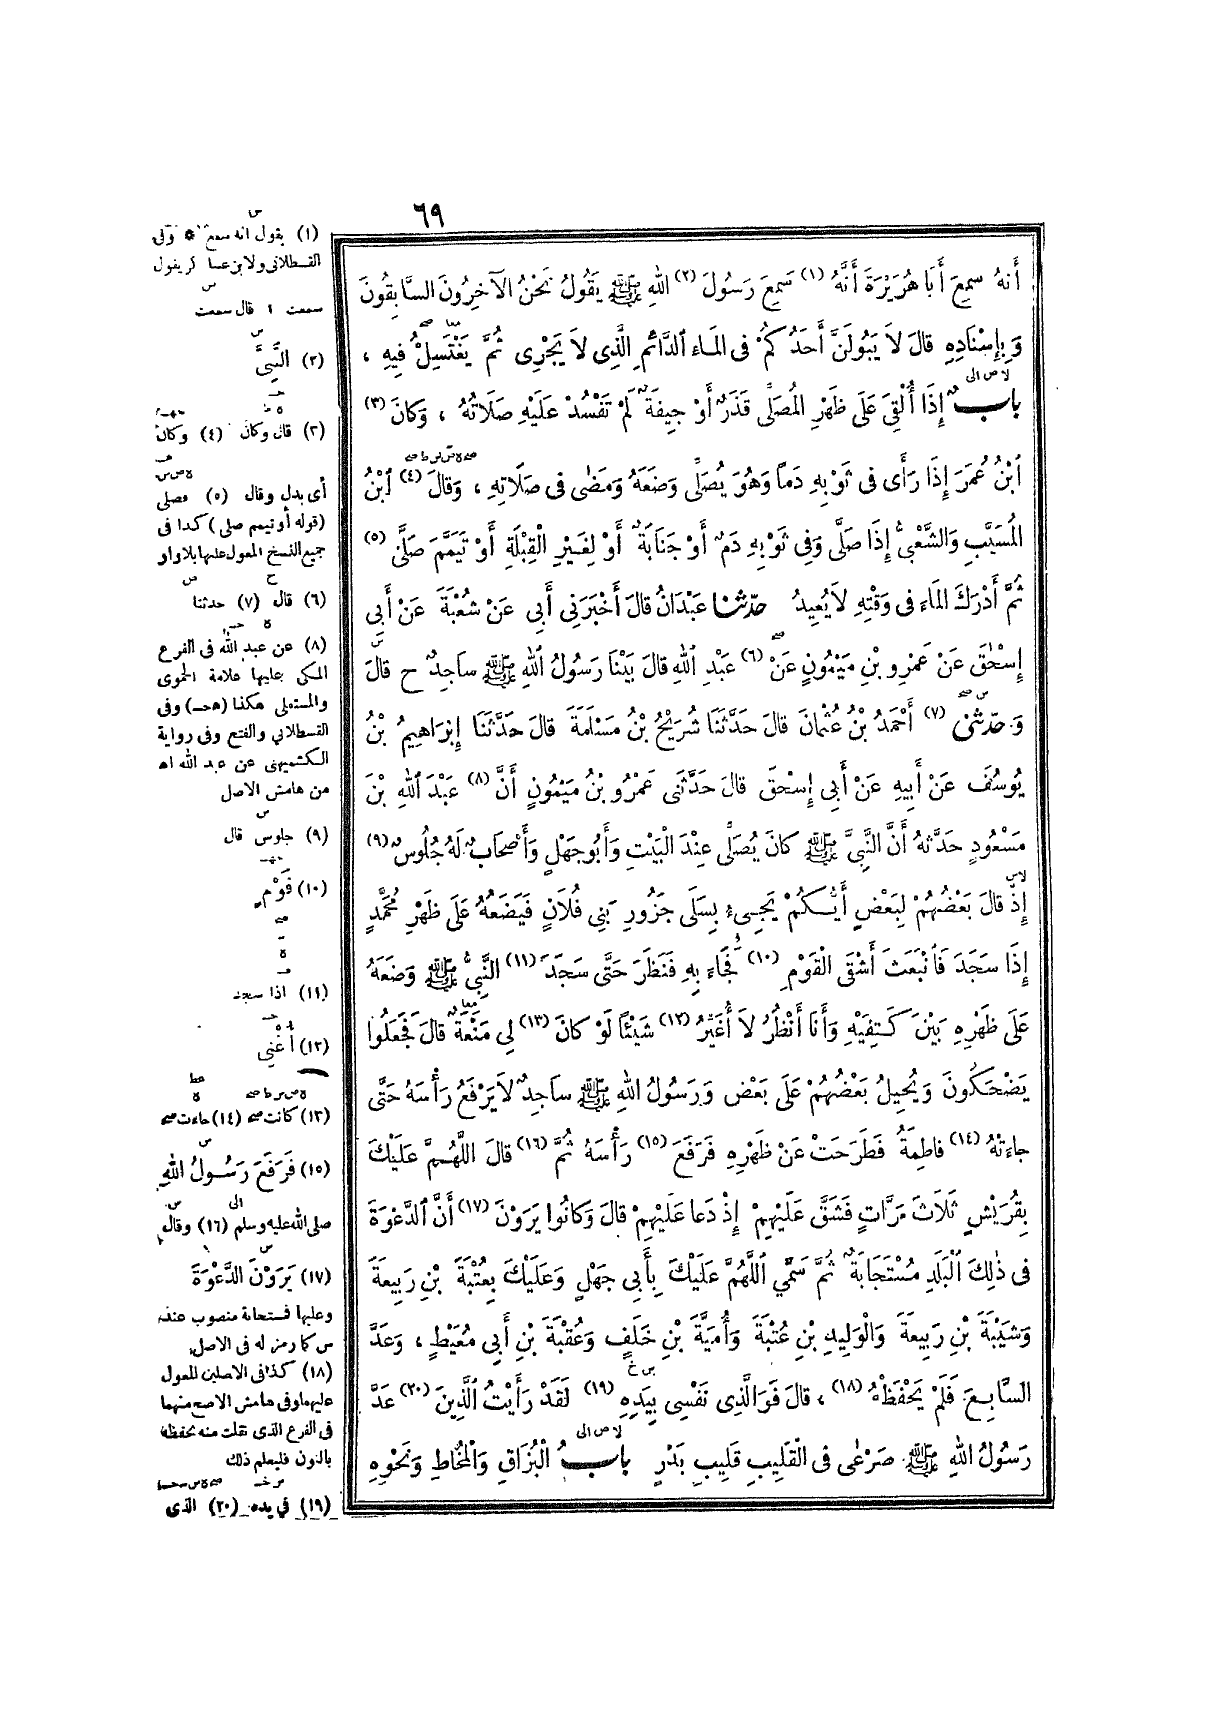 ٦٩
أَنَّهُ سَمِعَ أَبَا هُرَيْرَةَ أَنَّهُ (١) سَمِعَ رَسُولَ (٢) اللهِ ﷺ يَقُولُ نَحْنُ الْآخِرُونَ السَّابِقُونَ
وَبِإِسْنَادِهِ قَالَ لَا يَبُولَنَّ أَحَدُكُمْ فِى المَاءِ الدَّائِمِ الَّذِى لَا يَجْرِى ثُمَّ يَغْتَسِلُ فِيهِ ،
بابٌ إِذَا أُلْقِىَ عَلَى ظَهْرِ المُصَلِّى قَذَرٌ أَوْ جِيفَةٌ لَمْ تَفْسُدْ عَلَيْهِ صَلَاتُهُ ، وَكَانَ (٣)
ابْنُ عُمَرَ إِذَا رَأَى فِى ثَوْبِهِ دَمًا وَهُوَ يُصَلِّى وَضَعَهُ وَمَضَى فِى صَلَاتِهِ ، وَقَالَ (٤) ابْنُ
المُسَيَّبِ وَالشَّعْبِىُّ إِذَا صَلَّى وَفِى ثَوْبِهِ دَمٌ أَوْ جَنَابَةٌ أَوْ لِغَيْرِ الْقِبْلَةِ أَوْ تَيَمَّمَ صَلَّى (٥)
ثُمَّ أَدْرَكَ المَاءَ فِى وَقْتِهِ لَا يُعِيدُ حدّثنا عَبْدَانُ قَالَ أَخْبَرَنِى أَبِى عَنْ شُعْبَةَ عَنْ أَبِى
إِسْحٰقَ عَنْ عَمْرِو بْنِ مَيْمُونٍ عَنْ (٦) عَبْدِ اللهِ قَالَ بَيْنَا رَسُولُ اللهِ ﷺ سَاجِدٌ ح قَالَ
وَحدّثنى (٧) أَحْمَدُ بْنُ عُثْمَانَ قَالَ حَدَّثَنَا شُرَيْحُ بْنُ مَسْلَمَةَ قَالَ حَدَّثَنَا إِبْرَاهِيمُ بْنُ
يُوسُفَ عَنْ أَبِيهِ عَنْ أَبِى إِسْحٰقَ قَالَ حَدَّثَنِى عَمْرُو بْنُ مَيْمُونٍ أَنَّ (٨) عَبْدَ اللهِ بْنَ
مَسْعُودٍ حَدَّثَهُ أَنَّ النَّبِىَّ ﷺ كَانَ يُصَلِّى عِنْدَ الْبَيْتِ وَأَبُو جَهْلٍ وَأَصْحَابٌ لَهُ جُلُوسٌ (٩)
إِذْ قَالَ بَعْضُهُمْ لِبَعْضٍ أَيُّكُمْ يَجِىءُ بِسَلَى جَزُورِ بَنِى فُلَانٍ فَيَضَعُهُ عَلَى ظَهْرِ مُحَمَّدٍ
إِذَا سَجَدَ فَانْبَعَثَ أَشْقَى الْقَوْمِ (١٠) فَجَاءَ بِهِ فَنَظَرَ حَتَّى سَجَدَ (١١) النَّبِىُّ ﷺ وَضَعَهُ
عَلَى ظَهْرِهِ بَيْنَ كَتِفَيْهِ وَأَنَا أَنْظُرُ لَا أُغَيِّرُ (١٢) شَيْئًا لَوْ كَانَ (١٣) لِى مَنَعَةٌ قَالَ فَجَعَلُوا
يَضْحَكُونَ وَيُحِيلُ بَعْضُهُمْ عَلَى بَعْضٍ وَرَسُولُ اللهِ ﷺ سَاجِدٌ لَا يَرْفَعُ رَأْسَهُ حَتَّى
جَاءَتْهُ (١٤) فَاطِمَةُ فَطَرَحَتْ عَنْ ظَهْرِهِ فَرَفَعَ (١٥) رَأْسَهُ ثُمَّ (١٦) قَالَ اللَّهُمَّ عَلَيْكَ
بِقُرَيْشٍ ثَلَاثَ مَرَّاتٍ فَشَقَّ عَلَيْهِمْ إِذْ دَعَا عَلَيْهِمْ قَالَ وَكَانُوا يَرَوْنَ (١٧) أَنَّ الدَّعْوَةَ
فِى ذٰلِكَ الْبَلَدِ مُسْتَجَابَةٌ ثُمَّ سَمَّى اللَّهُمَّ عَلَيْكَ بِأَبِى جَهْلٍ وَعَلَيْكَ بِعُتْبَةَ بْنِ رَبِيعَةَ
وَشَيْبَةَ بْنِ رَبِيعَةَ وَالْوَلِيدِ بْنِ عُتْبَةَ وَأُمَيَّةَ بْنِ خَلَفٍ وَعُقْبَةَ بْنِ أَبِى مُعَيْطٍ ، وَعَدَّ
السَّابِعَ فَلَمْ يَحْفَظْهُ (١٨) ، قَالَ فَوَالَّذِى نَفْسِى بِيَدِهِ (١٩) لَقَدْ رَأَيْتُ الَّذِينَ (٢٠) عَدَّ
رَسُولُ اللهِ ﷺ صَرْعٰى فِى الْقَلِيبِ قَلِيبِ بَدْرٍ بابُ الْبُزَاقِ وَالْمُخَاطِ وَنَحْوِهِ
(١) يقول انه سمع * وفى
القسطلانى ولابن عساكر يقول
سمعت ا قال سمعت
(٢) النَّبِىَّ
(٣) قال وكان (٤) وكان
أى بدل وقال (٥) فصلى
(قوله أو تيمم صلى) كذا فى
جميع النسخ المعول عليها بلا واو
(٦) قال (٧) حدثنا
(٨) عن عبد الله فى الفرع
المكى عليها علامة الحموى
والمستملى هكذا (هحـ) وفى
القسطلانى والفتح وفى رواية
الكشميهنى عن عبد الله اه
من هامش الاصل
(٩) جلوس قال
(١٠) قَوْمٍ
(١١) اذا سجد
(١٢) أُغْنِى
(١٣) كانت (١٤) جاءت
(١٥) فَرَفَعَ رَسُولُ اللهِ
صلى الله عليه وسلم (١٦) وقال
(١٧) يَرَوْنَ الدَّعْوَةَ
وعليها فمستجابة منصوب عند
س كما رمز له فى الاصل
(١٨) كذا فى الاصلين المعول
عليهما وفى هامش الاصح منهما
فى الفرع الذى نقلت منه نحفظه
بالنون فليعلم ذلك
(١٩) فى يده (٢٠) الذى